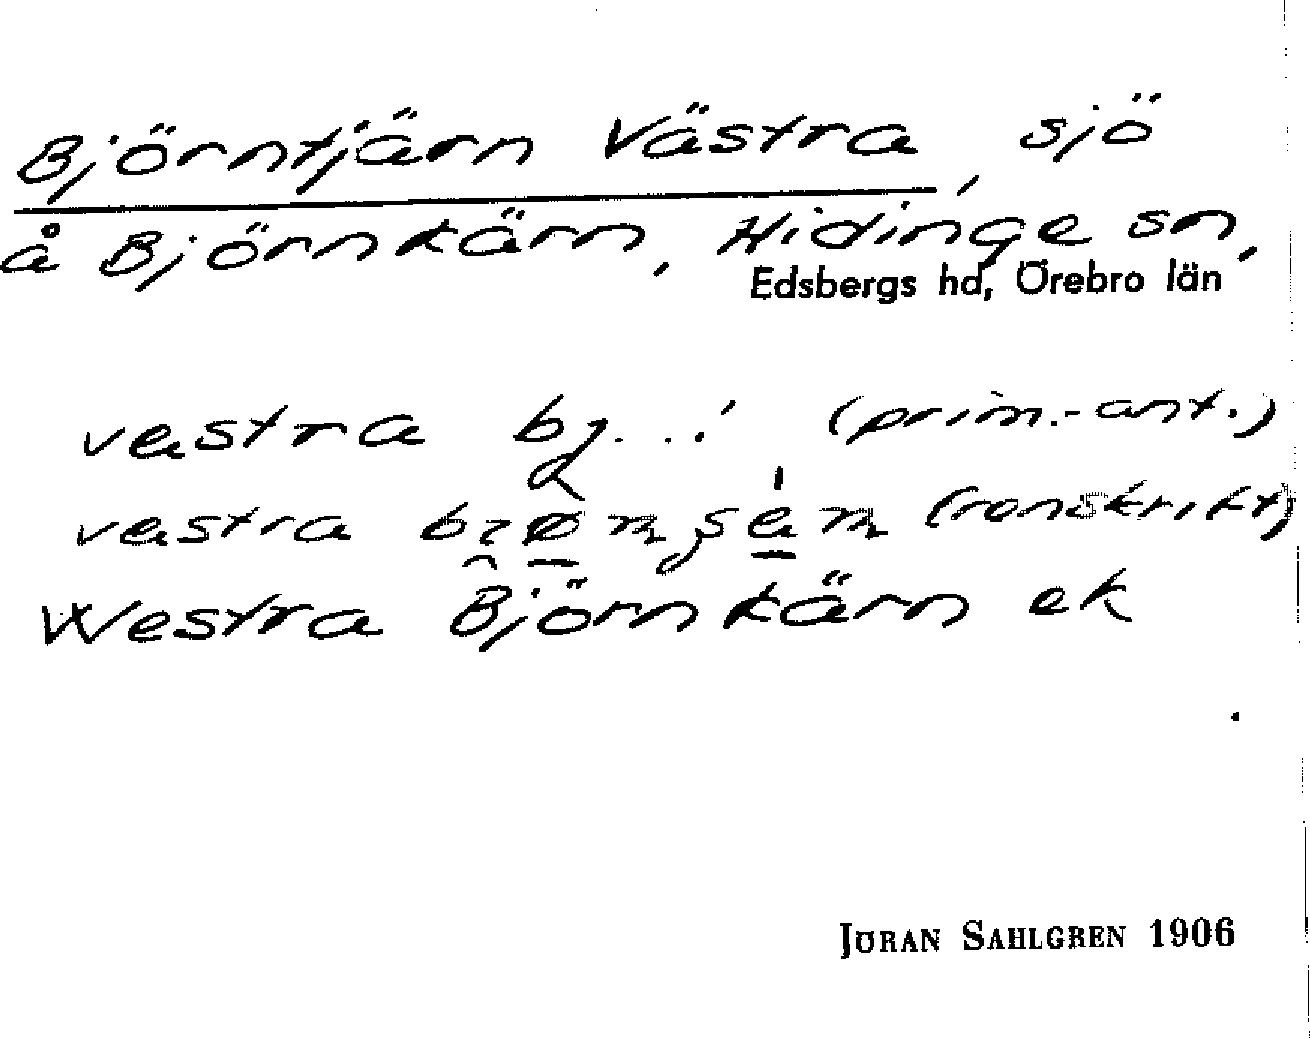 Björntjärn Västra, sjö
å Björnkärn, Hidinge sn,
Edsbergs hd, Örebro län
vestra bj...! (prim.-ant.)
vestra (renskrift)
Westra Björnkärn ek
JÖRAN SAHLGREN 1906